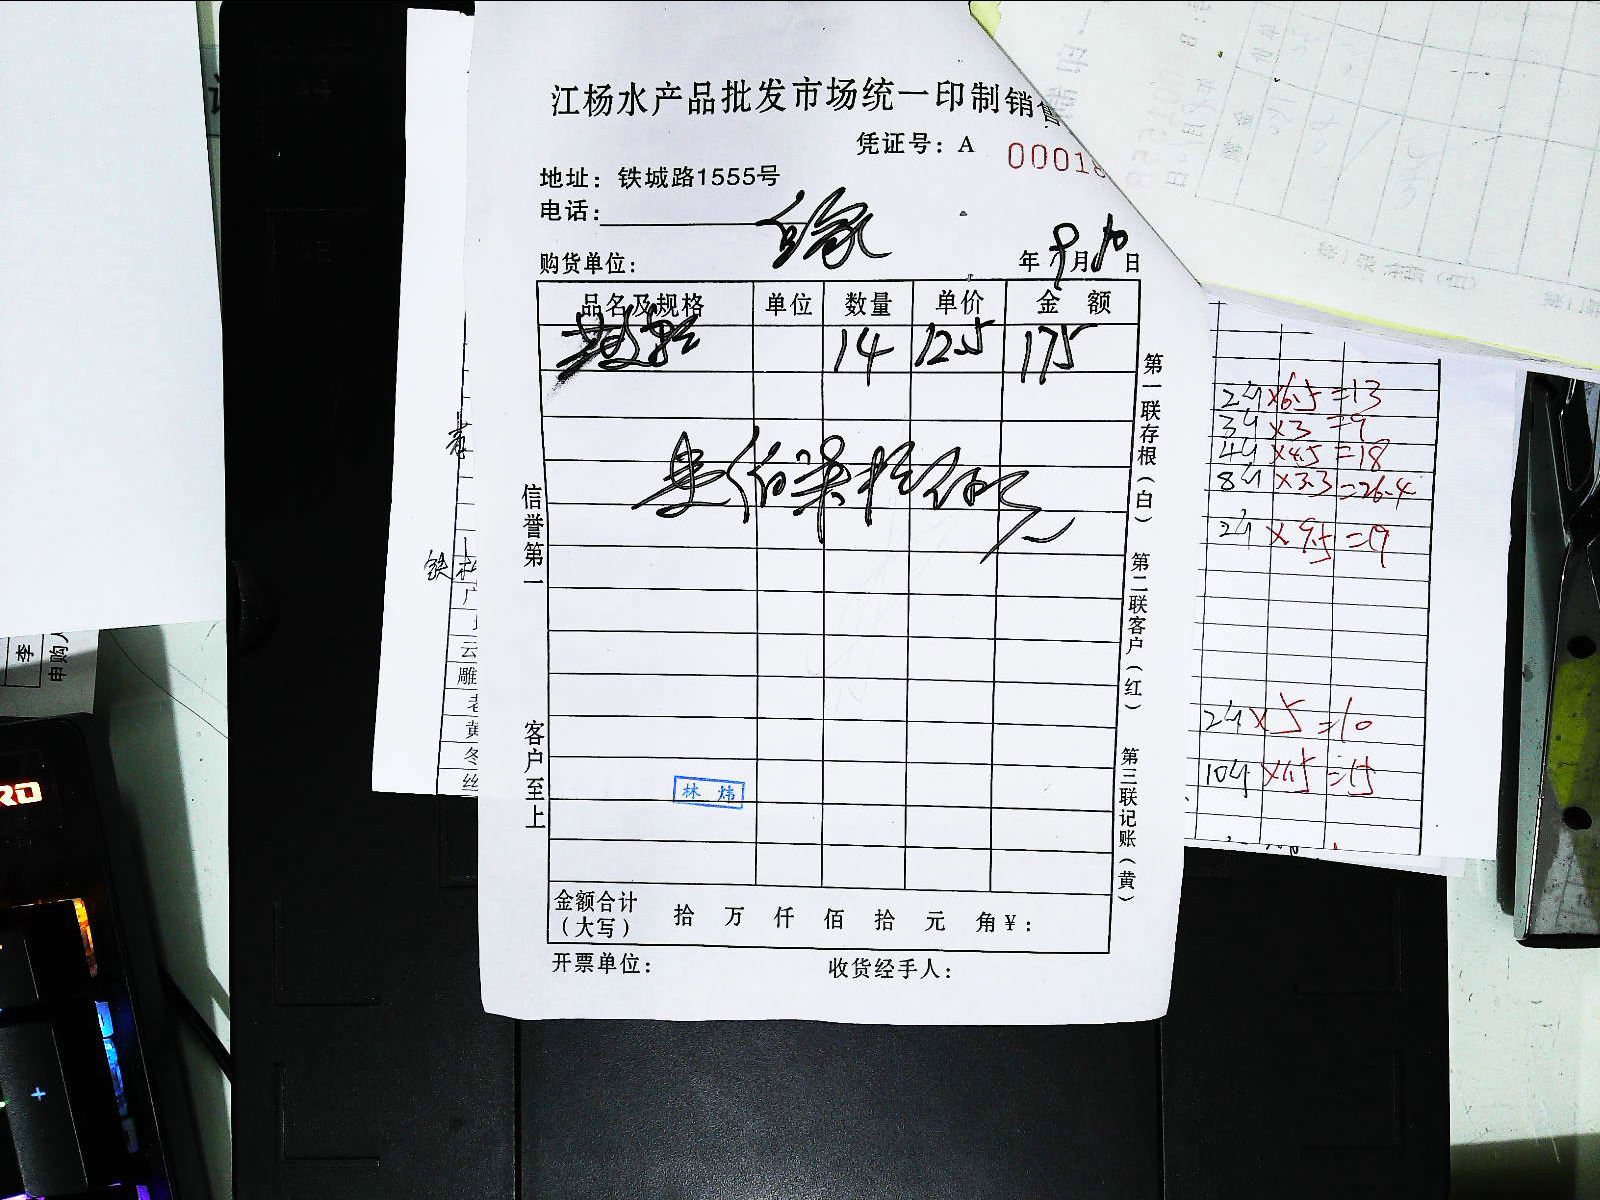 江杨水产品批发市场统一印制销售
凭证号：A 00018
地址：铁城路1555号
电话：
购货单位：
年 9月10日
品名及规格 单位 数量 单价 金额
14 12.5 175
壹佰柒拾伍元
信誉第一
客户至上
第一联存根（白）
第二联客户（红）
第三联记账（黄）
林炜
金额合计（大写） 拾 万 仟 佰 拾 元 角 ¥：
开票单位： 收货经手人：
2斤×6.5=13
3斤×3=9
4斤×4.5=18
8斤×3.3=26.4
2斤×9.5=19
2斤×5=10
10斤×1.5=15
李
申购人
铁
广
云
雕
老
黄
冬
丝